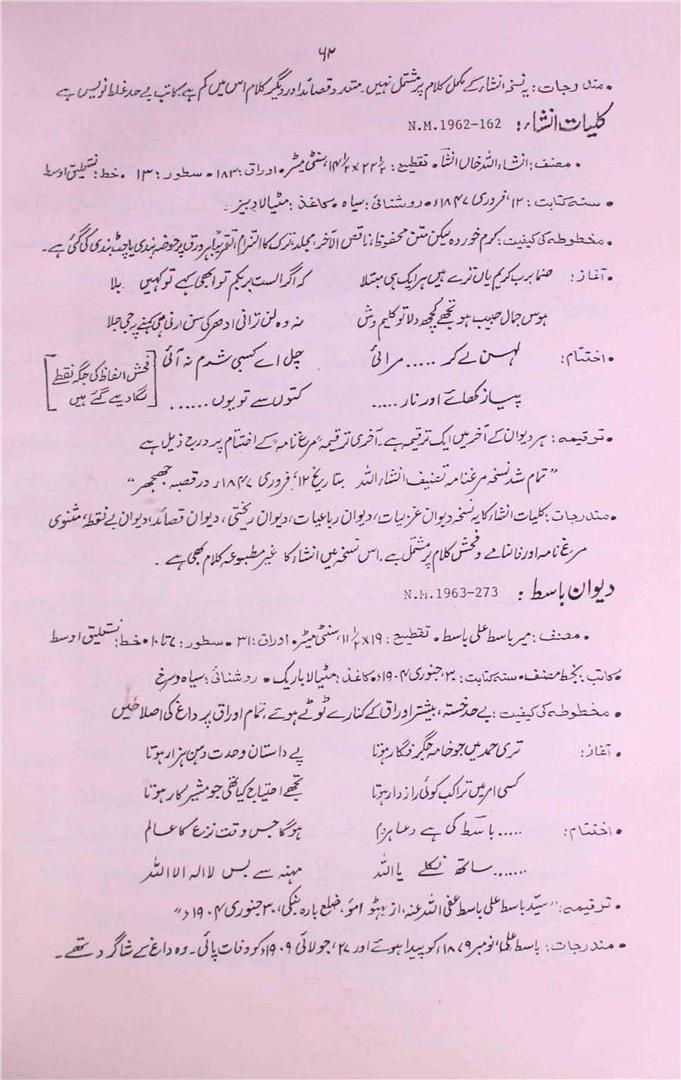 ۶۲
• مندرجات: یہ نسخہ انشاء کے مکمل کلام پر مشتمل نہیں۔ متعدد قصائد اور دیگر کلام اس میں کم ہے۔ کاتب بے حد غلط نویس ہے
کلیات انشاء: N.M.1962-162
• مصنف: انشاء اللہ خاں انشا • تقطیع: ۲۲ ۱/۲ × ۱۴ ۱/۲ سنٹی میٹر • اوراق: ۱۸۳ • سطور: ۱۳ • خط: نستعلیق اوسط
• سنہ کتابت: ۱۲ فروری ۱۸۴۷ء • روشنائی: سیاہ • کاغذ: مٹیالا دبیز۔
• مخطوطہ کی کیفیت: کرم خوردہ لیکن متن محفوظ، ناقص الآخر، مجلد، ترک کا التزام، تقریباً ہر ورق پر حوضہ بندی یا چٹ بندی کی گئی ہے۔
• آغاز: صنما برب کریم یاں ترے ہیں ہر ایک ہی مبتلا کہ اگر الست بربکم تو ابھی کہے تو کہیں بلا
ہوس جمال حبیب ہو تجھے کچھ دلا تو کلیم وش نہ وہ لن ترانی ادھر کی سن ارنی ہی کہنے پر جی جلا
• اختتام: لہسن لے کر ..... مرائی چل اے کسبی شدم نہ آئی [فحش الفاظ کی جگہ نقطے
پیاز کھائے اور نار ..... کتوں سے تو یوں ...... لگا دیے گئے ہیں]
• ترقیمہ: ہر دیوان کے آخر میں ایک ترقیمہ ہے۔ آخری ترقیمہ 'مرغ نامہ' کے اختتام پر درج ذیل ہے
"تمام شد نسخہ مرغنامہ تصنیف انشاء اللہ بتاریخ ۱۲، فروری ۱۸۴۷ء در قصبہ جھجھر"
• مندرجات: کلیات انشاء کا یہ نسخہ دیوان غزلیات، دیوان رباعیات، دیوان ریختی، دیوان قصائد، دیوان بے نقط، مثنوی
مرغ نامہ اور خالنامے و فحش کلام پر مشتمل ہے۔ اس نسخہ میں انشاء کا غیر مطبوعہ کلام بھی ہے ۔
دیوان باسط: N.M.1963-273
• مصنف: میر باسط علی باسط • تقطیع: ۱۹ × ۱۱ ۱/۲ سنٹی میٹر • اوراق: ۳۱ • سطور: ۷ تا ۱۰ • خط: نستعلیق اوسط
• کاتب: بخط مصنف • سنہ کتابت: ۳۰ جنوری ۱۹۰۴ء • کاغذ: مٹیالا باریک • روشنائی: سیاہ و سرخ
• مخطوطہ کی کیفیت: بے حد خستہ، بیشتر اوراق کے کنارے ٹوٹے ہوئے، تمام اوراق پر داغ کی اصلاحیں
• آغاز: تری حمد میں جو خامہ جگر فگار ہوتا پے داستان وحدت دہن ہزار ہوتا
کسی امر میں ترا کب کوئی رازدار ہوتا تجھے احتیاج کیا تھی جو مشیر کار ہوتا
• اختتام: ..... باسط کی ہے دعا ہر دم ہوگا جس وقت نزع کا عالم
...... ساتھ نکلے یا اللہ مہنہ سے بس لا الہ الا اللہ
• ترقیمہ: "سیّد باسط علی باسط عفی اللہ عنہ، از بہٹوامؤ، ضلع بارہ بنکی، ۳۰ جنوری ۱۹۰۴ء"
• مندرجات: باسط علی، نومبر ۱۸۷۹ء کو پیدا ہوئے اور ۲۷، جولائی ۱۹۰۹ء کو وفات پائی۔ وہ داغ کے شاگرد تھے۔